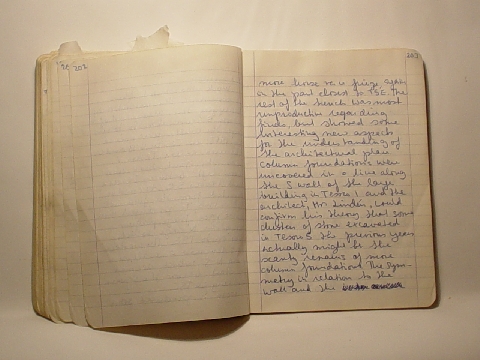 202
203
more loose
on the part closest to TSE. The
rest of the trench was most
unproductive regarding
finds, but showed some
interesting new aspects
for the understanding of
the architectural plan
column foundations were
uncovered in a line along
the S wall of the large
building in Tesor 1 and the
architect, Mr. Linden, could
confirm his theory that some
clusters of stone excavated
in Tesor 5 the previous year
actually might be the
scanty remains of more
column foundations. The sym-
metry in relation to the
wall and the